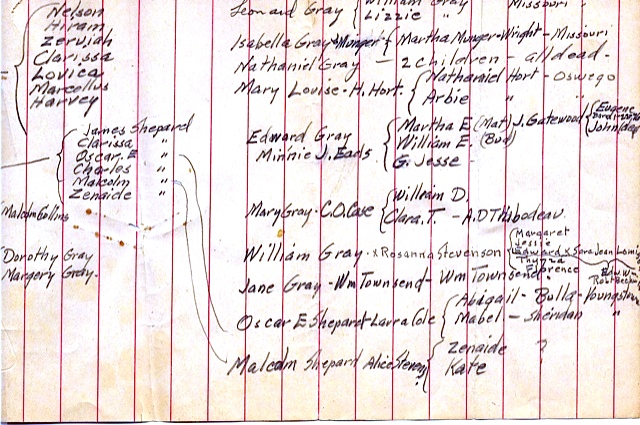 Nelson
Hiram
Zerviah
Clarissa
Lovica
Marcellus
Harvey
James Shepard
Clarissa "
Oscar E "
Charles "
Malcolm "
Zenaide "
Malcolm Collins
Dorothy Gray
Margery Gray
Leonard Gray William Gray Missouri
Lizzie " "
Isabella Gray - Munger Martha Munger-Wright - Missouri
Nathaniel Gray - 2 children - all dead.
Mary Louise - H. Hort. Nathaniel Hort - Oswego
Arbie " "
Edward Gray Martha E. (Mat) J. Gatewood Eugene
John
Minnie J. Eads William E. (Bud)
G. Jesse
Mary Gray - C.O. Case William D.
Clara. T. - A.D Thibodeau
William Gray - x Rosanna Stevenson Margaret
Jessie
Edward x Sara Jean Lomis
Florence
Edw. W.
Jane Gray - Wm Townsend - Wm Townsend.
Oscar E Shepard Laura Cole Abagail - Bulla - Youngstown
Mabel - Sheridan "
Malcolm Shepard Alice Stevens Zenaide ?
Kate